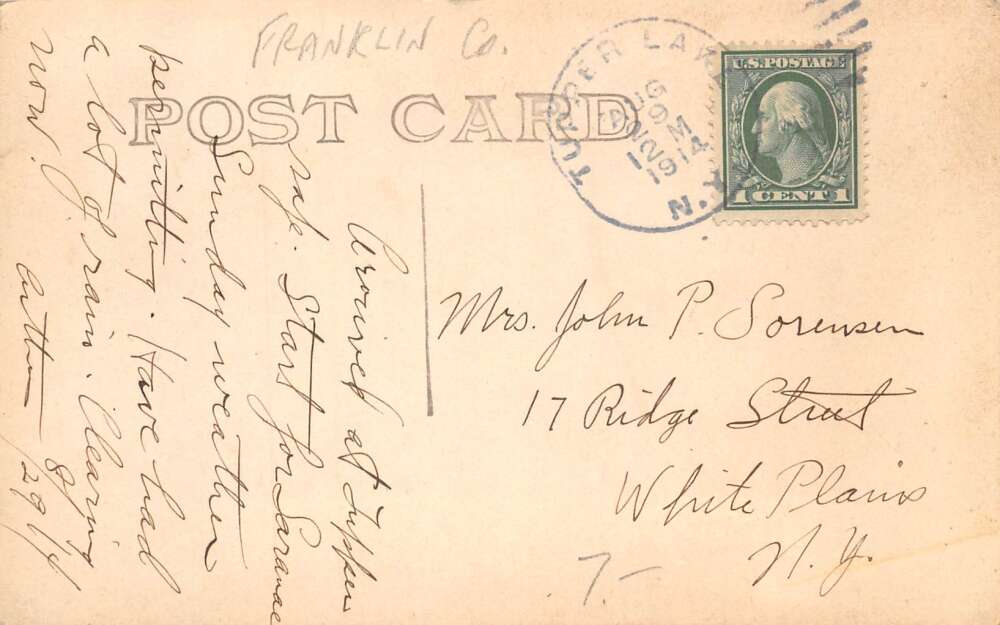 FRANKLIN Co.
POST CARD
TUPPER LAKE
AUG
29
12 M
1914
N.Y.
U.S. POSTAGE
1 CENT 1
Arrived at Tupper
safe. Start for Saranac
Sunday weather
permitting. Have had
a lot of rain. Clearing
now.
Arthur 8/29/14
Mrs. John P. Sorensen
17 Ridge Street
White Plains
N.Y.
7-